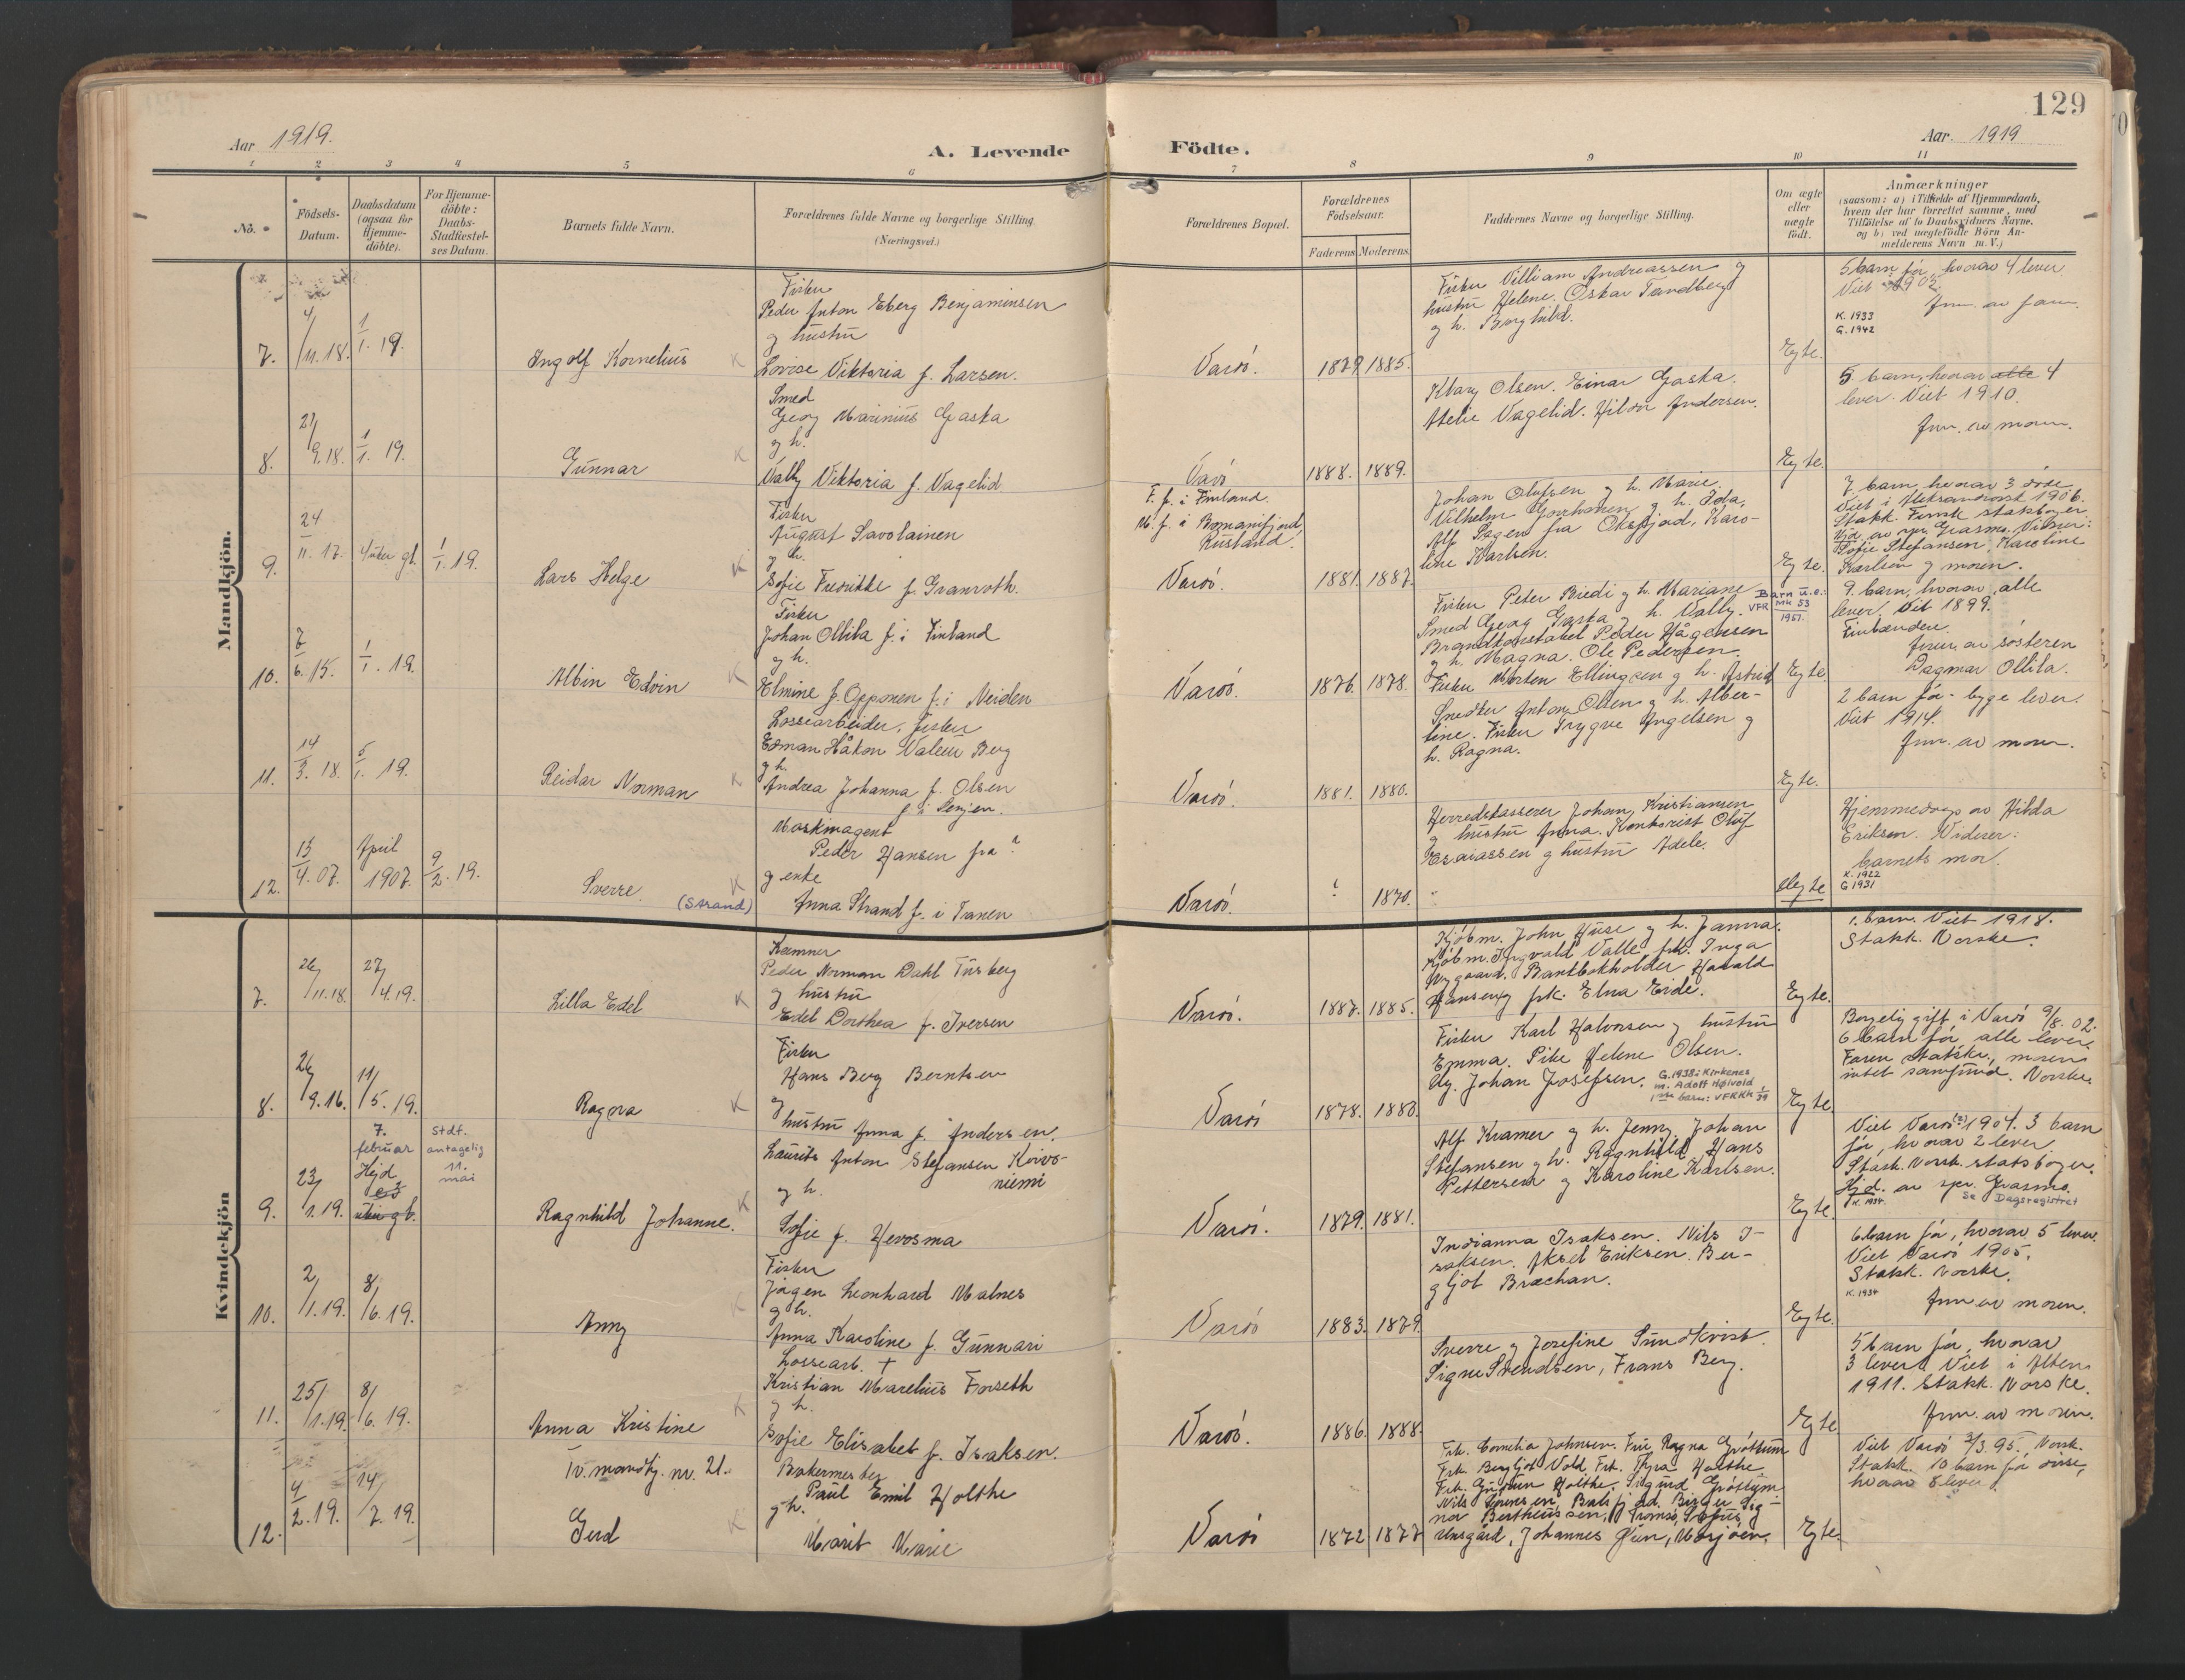 129
Aar 1919.
A. Levende
Födte.
Aar. 1919
1 2 3 4 5 6 7 8 9 10 11
No.
Födsels-
Datum.
Daabsdatum
(ogsaa for
Hjemme-
döbte).
For Hjemme-
döbte:
Daabs-
Stadfæstel-
ses Datum.
Barnets fulde Navn.
Forældrenes fulde Navne og borgerlige Stilling
(Næringsvei.)
Forældrenes Bopæl.
Forældrenes
Födselsaar.
Faderens Moderens
Faddernes Navne og borgerlige Stilling.
Om ægte
eller
uægte
födt.
Anmærkninger
(saasom: a) i Tilfælde af Hjemmedaab,
hvem der har forrettet samme, med
Tilföielse af to Daabsvidners Navne,
og b) ved uægtefödte Börn An-
melderens Navn m.V.)
Mandkjön.
7.
4/11.18.
1/1. 19.
Ingolf Kornelius
K
Fisker
Peder Anton Eberg Benjaminsen
g hustru
Lovise Viktoria f. Larsen.
Vardö.
1879 1885.
Fisker Villiam Andreassen g
hustru Helene. Oskar Tandberg
g h. Borghild.
Egte.
5 barn för, hvorav 4 lever
Viet 1902.
K. 1933
G. 1942
8.
21/9.18.
1/1. 19.
Gunnar
K
Smed
Georg Marinius Gaska
g h.
Vally Viktoria f. Vagelid
Vardö
1888. 1889.
Olsen. Einar Gaska.
Vagelid. Andersen.
Egte.
5 barn, hvorav alle 4
lever. Viet 1910.
av moren.
9.
24/11.17.
1/1.19.
Lars Helge
K
Fisker
August Savolainen
g h.
Sofie Fredrikke f. Granroth.
F. f. i Finland.
M. f. i Bomanifjord
Rusland.
Vardö.
1881. 1887.
Johan Olufsen g h. Marie.
Vilhelm g h. Ida,
Alf fra Karo-
line Karlsen.
Egte.
7 barn, hvorav 3 döde
Viet i Aleksandrovsk 1906.
Stakk. Finsk statsborger
Sofie Stefansen. Karoline
Karlsen g moren.
10.
7/6.15.
1/1. 19.
Albin Edvin
K
Fisker
Johan Ollila f. i Finland
g h.
Elmine f. Opponen f. i Neiden
Vardö.
1876. 1878.
Fisker Peter Biedi g h. Mariane
Smed Georg Gaska g h. Vally.
Brandkonstabel Peder Hågensen
g h. Magna. Ole Pedersen.
Barn u.e.:
VFR MK 53
1957.
Egte
9. barn, hvorav alle
lever. Vit 1899.
av sösteren
Dagmar Ollila.
11.
14/3. 18.
5/1. 19.
Reidar Norman
K
Lossearbeider, fisker
Edman Håkon Valeur Berg
g h.
Andrea Johanna f. Olsen
f. i Senjen.
Vardö.
1881. 1880.
Fisker Morten Ellingsen g h. Astrid
Snedker Anton Olsen g h. Alber-
tine. Fisker Trygve Ingelsen g
h. Ragna.
Egte.
2 barn för - begge lever.
Viet 1914.
av moren.
12.
15/4.07.
April
1907.
9/2.19.
Sverre.
(Strand)
K
Maskinagent
Peder Hansen fra ?
g enke
Anna Strand f. i Tranen
Vardö.
? 1870.
Herredskasserer Johan Kristiansen
g hustru Anna. Kontorist Oluf
Esaiassen g hustru Adele.
Uegte
Hjemmedöpt av Hilda
Eriksen. Vidner:
barnets mor.
K. 1922
G 1931
Kvindekjön
7.
26/11.18.
27/4.19.
Lilla Edel
K
Kemner
Peder Norman Dahl Tusberg
g hustru
Edel Dorthea f. Iversen
Vardö.
1887. 1885.
Kjöbm. John Huse g h. Janna.
Kjöbm. Ingvald Valle frk. Inga
Nygaard. Bankbokholder Harald
Hansen g frk. Elna Eide.
Egte.
1. barn. Viet 1918.
Statsk. Norske.
8.
26/9.16.
11/5.19.
Ragna
K
Fisker
Hans Berg Berntsen
g
hustru Anna f. Andersen.
Vardö
1878. 1880.
Fisker Karl Halvorsen g hustru
Emma. Pike Helene Olsen.
Ug. Johan Josefsen.
G. 1938 i Kirkenes
m. Adolf Hølvold
Egte.
Borgelig gift i Vardö 9/8. 02.
6 barn för, alle lever.
Faren statskr., moren
intet samfund. Norske.
9.
23/1.19.
7.
februar
Hjd
Stdf.
antagelig
11.
mai
Ragnhild Johanne.
K
Laurits Anton Stefansen Koivo-
niemi
g h.
Sofie f. Hevosma
Vardö.
1879. 1881.
Alf Kramer g h. Jenny. Johan
Stefansen g h. Ragnhild Hans
Pettersen g Karoline Karlsen.
Egte.
Viet Vardö 1904. 3 barn
för, hvorav 2 lever
Stask. Norsk. statsborger.
Hjd. av spr. Grasmo.
K. 1934. Se Dagsregistret
10.
2/1.19.
8/6.19.
Anny
K
Fisker
Jörgen Leonhard Malnes
g h.
Anna Karoline f. Gunnari
Vardö
1883. 1879.
Indianna Isaksen. Nils I-
saksen. Aksel Eriksen. Ber-
gljot Brækhan.
Egte.
6 barn för, hvorav 5 lever.
Viet Vardö 1905.
Statsk. Norske.
K. 1934
av moren.
11.
25/1.19.
8/6.19.
Anna Kristine
K
Lossearb. +
Kristian Marelius Forseth
g h.
Sofie Elisabet f. Isaksen.
Vardö.
1886. 1888.
Sverre g Josefine Sundkvist.
Signe Svendsen, Frans Berg.
Egte
5 barn för, hvorav
3 lever. Viet i Alten
1911. Statsk. Norske.
av moren.
12.
4/2.19.
14/7.19.
Tv. mandkj. nr. 21.
Gerd
K
Bakermester
Paul Emil Holthe
g h.
Marit Marie
Vardö
1872 1877
Frk. Cornelia Johnsen. Fru Ragna Gröttum
Frk. Bergljot Vold Frk. Thyra Holthe
Frk. Gudrun Holthe. Sigurd Gröttum
Nils Birger Sig-
nor Bertheussen, Tromsö,
Johannes Mosjöen.
Egte.
Viet Vardö 3/3.95. Norsk.
Statsk. 10 barn för disse,
hvorav 8 lever.